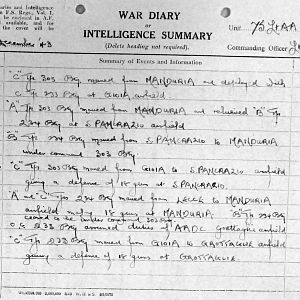 aries and Intelligence
in F.S. Regs., Vol. I.
be enclosed in A.F.
available, and for
the cover will be
WAR DIARY
or
INTELLIGENCE SUMMARY
(Delete heading not required).
Unit 75 LtAA
Commanding Officer
Summary of Events and Information
"C" Tp 303 Bty moved from MANDURIA and deployed with
233 Bty at GIOIA airfield
"A" Tp 303 Bty moved from MANDURIA and relieved "B" Tp
234 Bty at S PANCRAZIO airfield
"B" Tp 234 Bty moved from S PANCRAZIO to MANDURIA
under command 303 Bty
"C" Tp 303 Bty moved from GIOIA to S PANCRAZIO airfield
giving a defence of 18 guns at S PANCRAZIO.
"A" and "C" Tp 234 Bty moved from LECCE to MANDURIA
airfield making 18 guns at MANDURIA. "B" Tp 234 Bty
ceased to be under command 303 Bty
O.C. 233 Bty assumed duties of AADC Grottaglie airfield
"C" Tp 233 Bty moved from GIOIA to GROTTAGLIE airfield
giving a defence of 18 guns at GROTTAGLIE.